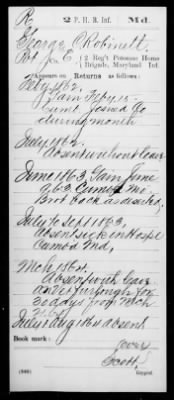 R 2 P. H. B. Inf. Md.
George O Robinett
Pvt, Co. E, 2 Reg't Potomac Home Brigade, Maryland Inf.
Appears on Returns as follows:
Feby 1862.
Gain Feby
Joined Co
during month
July 1862.
Absent without leave
June 1863 Gain June
Md
Brot back as deserted.
July to Sept 1863,
Absent sick in Hospl
Md.
Mch 1864.
Absent with leave
on vet furlough for
30 days from Mch
July & Aug 1864 absent
Book mark:
(over)
Scott,
(546) Copyist.